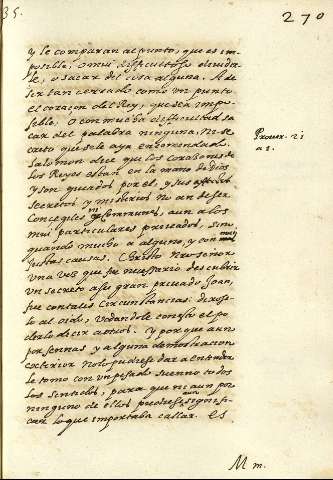 35.
270
y le comparan al punto, que es im-
posible, o mui dificultoso dividir-
le, o sacar del cosa alguna. A de
ser tan cerrado como un punto
el coraçon del Rey, que sea impo-
sible, o con mucha dificultad sa-
car del palabra ninguna, ni se-
creto que se le aya encomendado.
Salomon dice que los corazones de
los Reyes estan en la mano de Dios
y son guiados por el, y sus
secretos y misterios no an de ser
Concegiles ni comunes, aun a los
mui particulares privados, sino
quando mucho a alguno, y con muy
justas causas. Christo Nro señor
una vez que fue necessario descubrir
un secreto a ese gran privado Joan,
fue con tales circunstancias. dixose-
lo al oido, vedandole con eso el po-
derlo decir a otros. Y porque aun
por señas y alguna demostracion
exterior no lo pudiese dar a entender
le tomo con un pesado sueño todos
los sentidos, para que ni aun por
ninguno de ellos pudiese aun signifi-
car lo que importaba callar. Es
Prover. 21
a 1.
Mm.